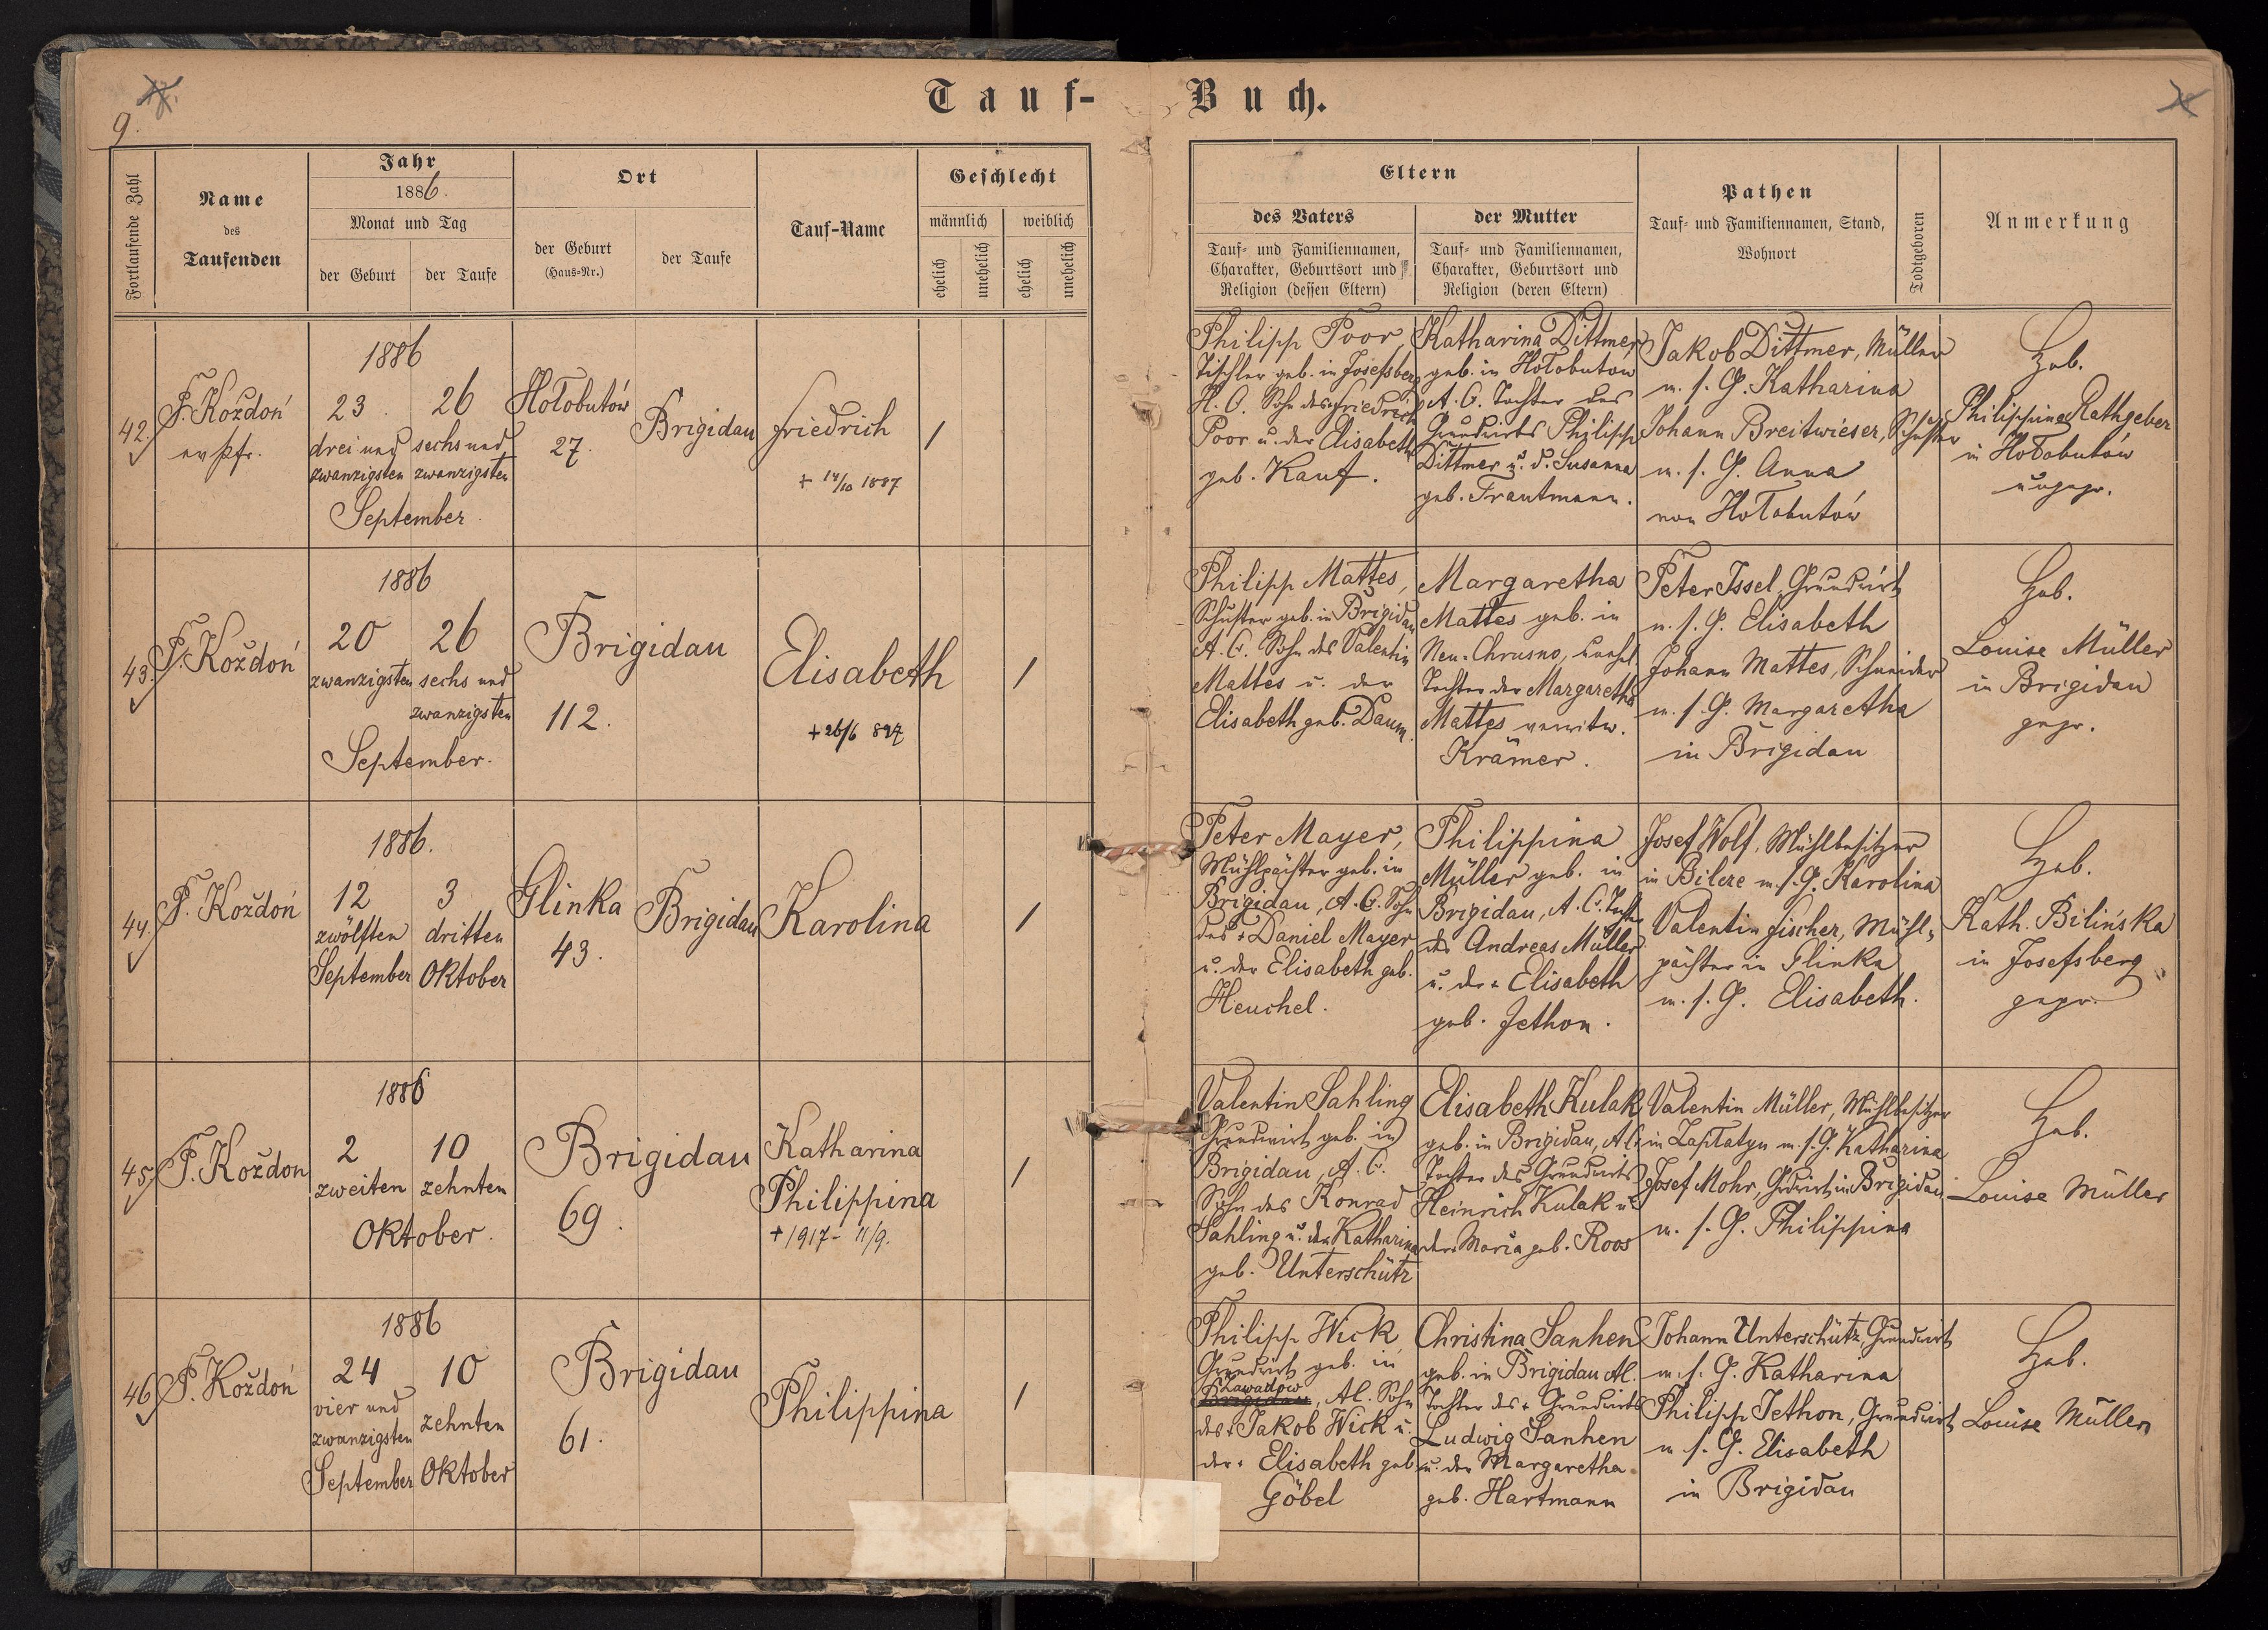 Tauf-Buch.
9.
Fortlaufende Zahl
Name
des
Taufenden
Jahr
1886.
Monat und Tag
der Geburt
der Taufe
Ort
der Geburt
(Haus-Nr.)
der Taufe
Tauf-Name
Geschlecht
männlich
weiblich
ehelich
unehelich
ehelich
unehelich
Eltern
des Vaters
Tauf- und Familiennamen,
Charakter, Geburtsort und
Religion (dessen Eltern)
der Mutter
Tauf- und Familiennamen,
Charakter, Geburtsort und
Religion (deren Eltern)
Pathen
Tauf- und Familiennamen, Stand,
Wohnort
Todtgeboren
Anmerkung
42.
F. Koždoń
ev. Pfr.
1886
23.
drei und
zwanzigsten
26
sechs und
zwanzigsten
September.
Hołobutów
27.
Brigidau
Friedrich
+ 14/10 1887
/
Philipp Poor,
Tischler geb. in Josefsberg
H. C. Sohn des Friedrich
Poor u. der Elisabeth
geb. Kauf.
Katharina Dittmer
geb. in Hołobutow
A. C. Tochter des
Grundwirts Philipp
Dittmer u. d. Susanna
geb. Trautmann.
Jakob Dittmer, Müller
m. s. G. Katharina
Johann Breitwieser, Schuster
m. s. G. Anna
von Hołobutów
Heb.
Philippina Rathgeber
in Hołobutów
ungepr.
43.
F. Koždoń
1886
20
zwanzigsten
26
sechs und
zwanzigsten
September.
Brigidau
112.
Elisabeth
+ 26/6 897
/
Philipp Mattes,
Schuster geb. in Brigidau
A. C. Sohn des Valentin
Mattes u. der
Elisabeth geb. Daum.
Margaretha
Mattes geb. in
Neu-Chrusno,
Tochter der Margaretha
Mattes verwitw.
Krämer.
Peter Issel, Grundwirt
m. s. G. Elisabeth
Johann Mattes, Schneider
m. s. G. Margaretha
in Brigidau
Heb.
Louise Müller
in Brigidau
gepr.
44.
F. Koždoń
1886.
12
zwölften
September
3
dritten
Oktober
Glinka
43.
Brigidau
Karolina
/
Peter Mayer,
Mühlpächter geb. in
Brigidau, A. C. Sohn
des + Daniel Mayer
u. der Elisabeth geb.
Heuchel.
Philippina
Müller geb. in
Brigidau, A. C. Tochter
des Andreas Müller
u. der + Elisabeth
geb. Jethon.
Josef Wolf, Mühlbesitzer
in Bilcze m. s. G. Karolina
Valentin Fischer, Mühl-
pächter in Glinka
m. s. G. Elisabeth.
Heb.
Kath. Bilińska
in Josefsberg
gepr.
45.
F. Koždon
1886
2
zweiten
10
zehnten
Oktober.
Brigidau
69.
Katharina
Philippina
+ 1917 - 11/9.
/
Valentin Sahling
Grundwirt geb. in
Brigidau, A. C.
Sohn des Konrad
Sahling u. der Katharina
geb. Unterschütz
Elisabeth Kulak
geb. in Brigidau, A. C.
Tochter des Grundwirts
Heinrich Kulak u.
der Maria geb. Roos
Valentin Müller, Mühlbesitzer
in Zapłatyn m. s. G. Katharina
Josef Mohr, Grdwirt in Brigidau
m. s. G. Philippina
Heb.
Louise Müller
46.
F. Koždoń
1886
24
vier und
zwanzigsten
September
10
zehnten
Oktober
Brigidau
61.
Philippina
/
Philipp Wick
Grundwirt geb. in
Zawadow
Brigidau, AC. Sohn
des + Jakob Wick u.
der + Elisabeth geb.
Göbel
Christina Sanhen
geb. in Brigidau AC.
Tochter des + Grundwirts
Ludwig Sanhen
u. der Margaretha
geb. Hartmann
Johann Unterschütz, Grundwirt
m. s. G. Katharina
Philipp Jethon, Grundwirt
m. s. G. Elisabeth
in Brigidau
Heb.
Louise Müller